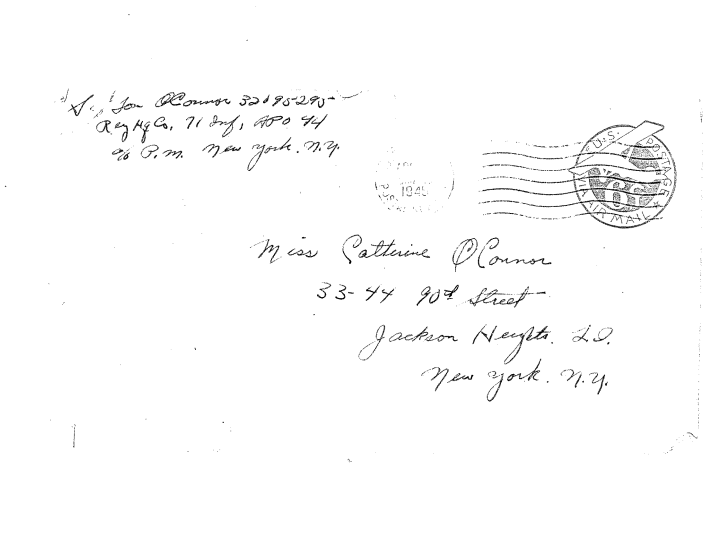 Tom O'Connor 32095295
Reg Hq Co, 71 Inf, APO 44
c/o P.M. New York. N.Y.
1945
U.S. POSTAGE
6¢
VIA AIR MAIL
Miss Catherine O'Connor
33-44 90th Street
Jackson Heights. L.I.
New York. N.Y.